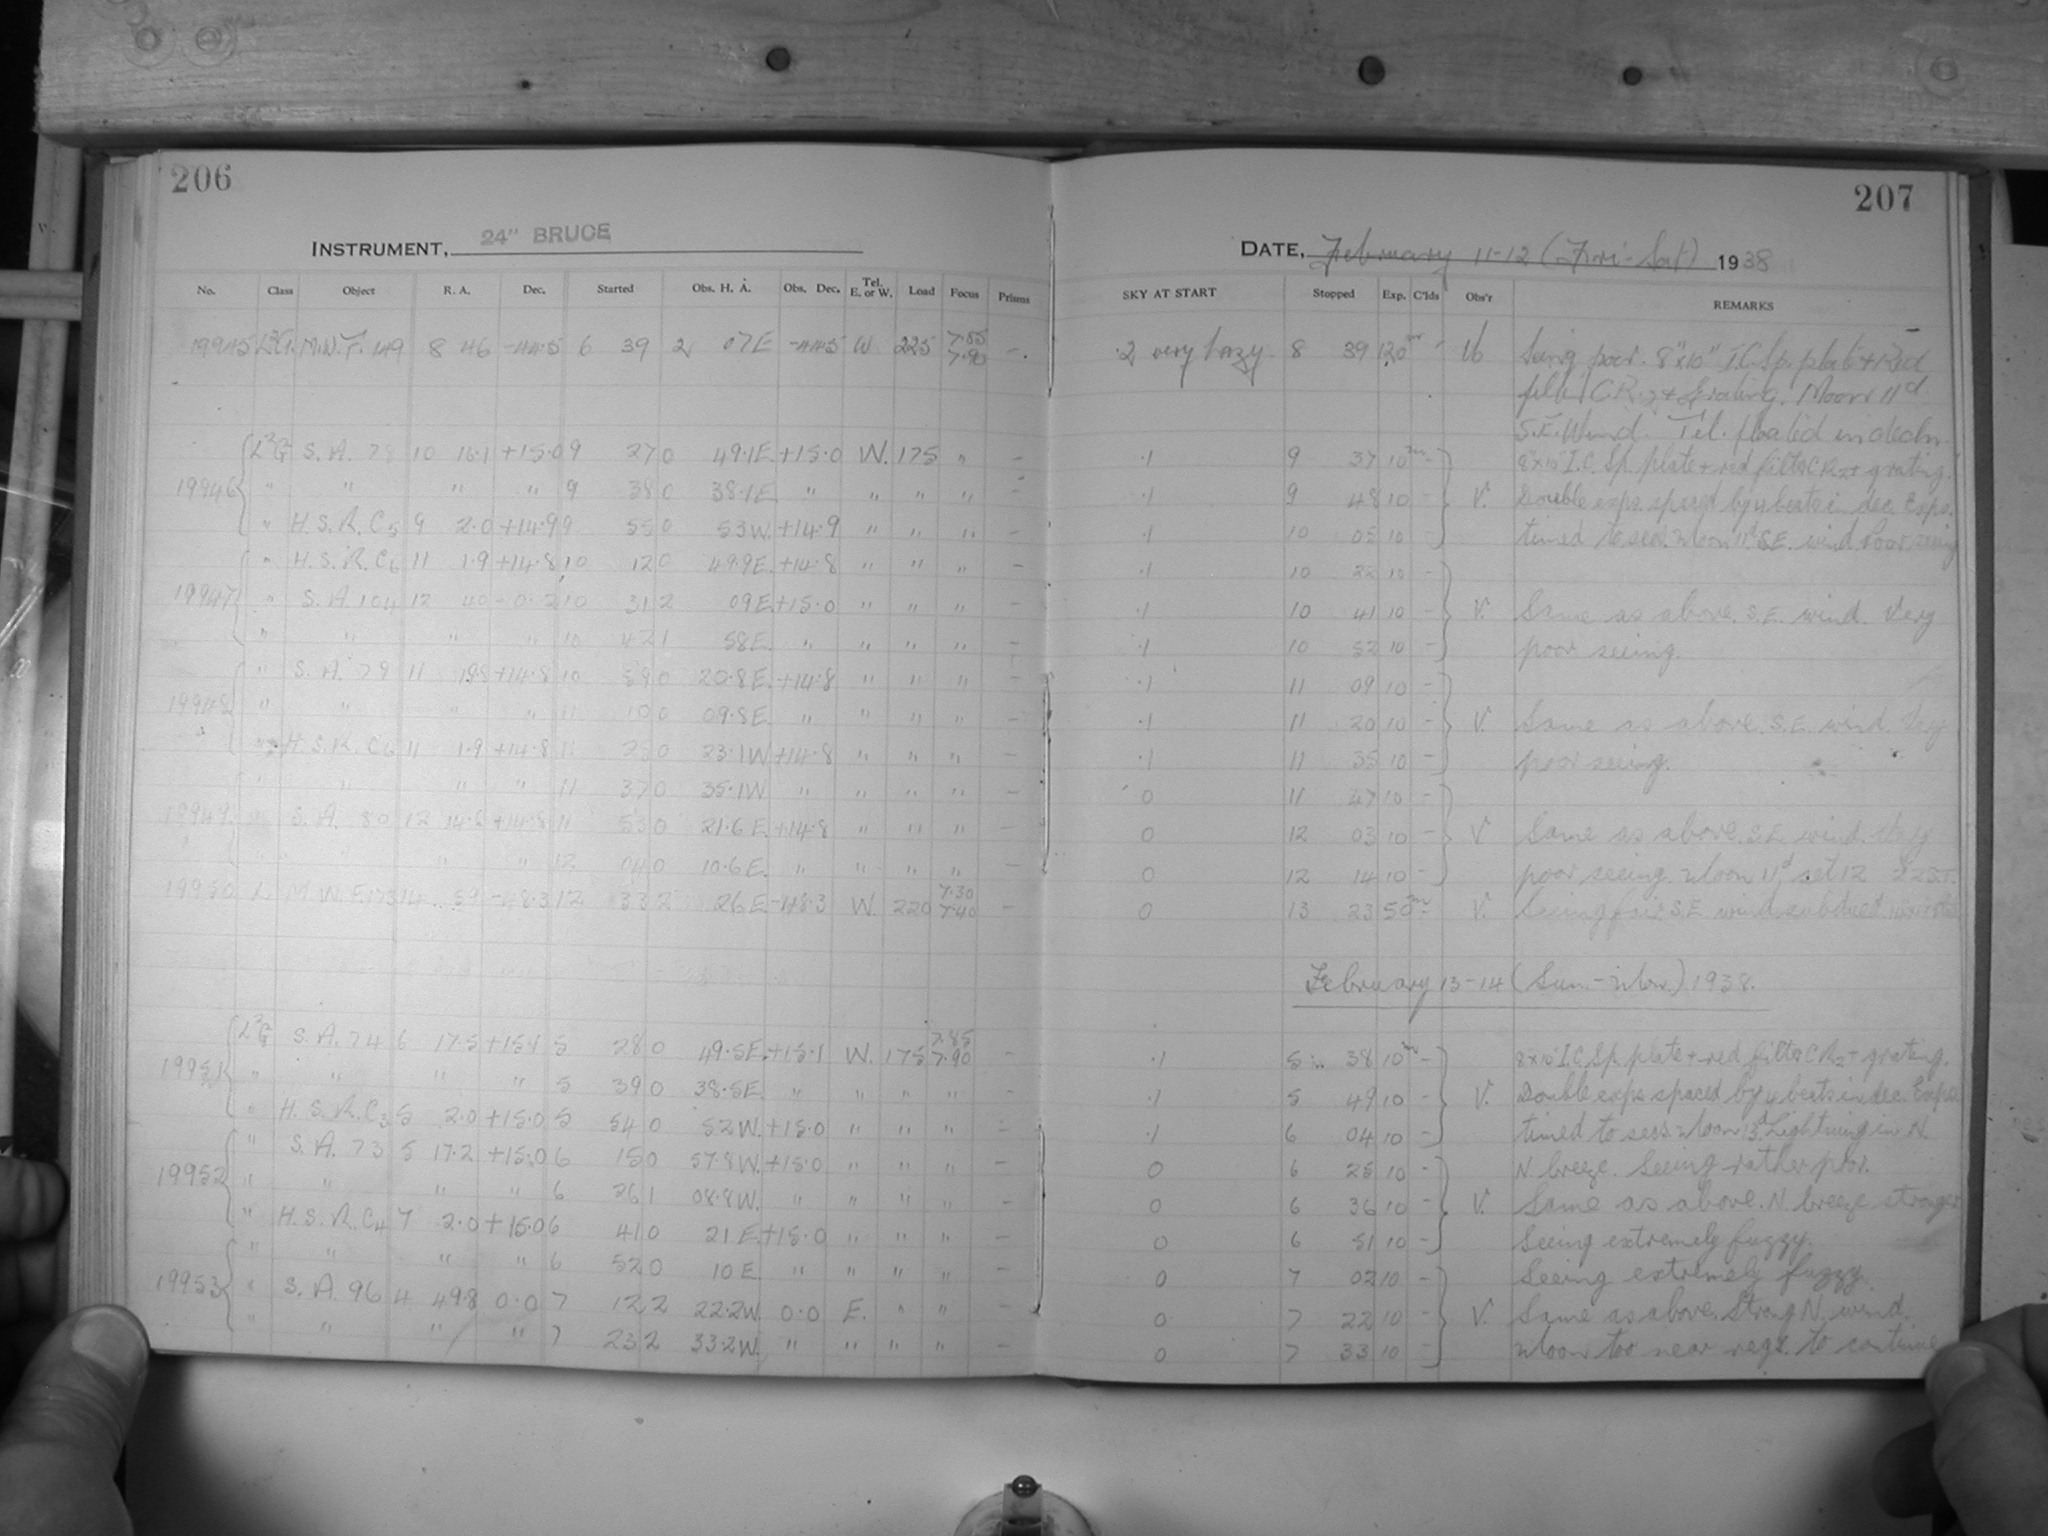 206
INSTRUMENT, 24" BRUCE
No. Class Object R. A. Dec. Started Obs. H. A. Obs. Dec. Tel. E. or W. Load Focus Prisms
19945 L3G. M.W.F. 149 8 46 -44.5 6 39 2 07E -44.5 W. 225 7.85 7.90 -
L2G S. A. 78 10 16.1 +15.0 9 27 0 49.1E. +15.0 W. 175 " -
19946 " " " " 9 38 0 38.1E. " " " " -
" H. S. R. C5 9 2.0 +14.9 9 55 0 53W. +14.9 " " " -
" H. S. R. C6 11 1.9 +14.8 10 12 0 49.9E. +14.8 " " " -
19947 " S. A. 104 12 40 -0.2 10 31 2 09E. +15.0 " " " -
" " " " 10 42 1 58E. " " " " -
" S. A. 79 11 19.8 +14.8 10 59 0 20.8E. +14.8 " " " -
19948 " " " " 11 10 0 09.8E. " " " " -
" H. S. R. C6 11 1.9 +14.8 11 25 0 23.1W. +14.8 " " " -
" " " " 11 37 0 35.1W " " " " -
19949 " S. A. 80 12 14.8 +14.8 11 53 0 21.6E. +14.8 " " " -
" " " " 12 04 0 10.6E. " " " " -
19950 L M. W. F. 173 14 59 -48.3 12 33 2 26E. -48.3 W. 220 7.30 7.40 -
L2G S. A. 74 6 17.5 +15.1 5 28 0 49.5E. +15.1 W. 175 7.85 7.90 -
19951 " " " " 5 39 0 38.5E. " " " " -
" H. S. R. C3 5 2.0 +15.0 5 54 0 52W. +15.0 " " " -
" S. A. 73 5 17.2 +15.0 6 15 0 57.8W. +15.0 " " " -
19952 " " " " 6 26 1 08.8W. " " " " -
" H. S. R. C4 7 2.0 +15.0 6 41 0 21E. +15.0 " " " -
" " " " 6 52 0 10E. " " " " -
19953 " S. A. 96 4 49.8 0.0 7 12 2 22.2W. 0.0 E. " " -
" " " " 7 23 2 33.2W. " " " " -
207
DATE, February 11-12 (Fri-Sat) 1938
SKY AT START Stopped Exp. C'lds Obs'r REMARKS
.2 very hazy 8 39 120m Seeing poor. 8"x10" I.C. Sp. plate + Red
filter CR2 + Grating. Moon 11d
S.E. Wind. Tel. floated in decln.
.1 9 37 10m - 8x10 I.C. Sp. plate + red filter CR2 + grating.
.1 9 48 10 - V. Double exps. spaced by 4 beats in dec. Exps.
.1 10 05 10 - timed to sec. Moon 11d S.E. wind. Poor seeing
.1 10 22 10 -
.1 10 41 10 - V. Same as above. S.E. wind. Very
.1 10 52 10 - poor seeing.
.1 11 09 10 -
.1 11 20 10 - V. Same as above. S.E. wind. Very
.1 11 35 10 - poor seeing.
0 11 47 10 -
0 12 03 10 - V. Same as above. S.E. wind. Very
0 12 14 10 - poor seeing. Moon 11d set 12
0 13 23 50m - V. Seeing fair. S.E. wind subdued.
February 13-14 (Sun.-Mon.) 1938.
.1 5 38 10m - 8x10 I.C. Sp. plate + red filter CR2 + grating.
.1 5 49 10 - V. Double exps. spaced by 4 beats in dec. Exps.
.1 6 04 10 - timed to secs. Moon 13d Lightning in N.
0 6 25 10 - N. breeze. Seeing rather poor.
0 6 36 10 - V. Same as above. N. breeze stronger
0 6 51 10 - Seeing extremely fuzzy.
0 7 02 10 - Seeing extremely fuzzy.
0 7 22 10 - V. Same as above. Strong N. wind.
0 7 33 10 - Moon too near regs. to continue